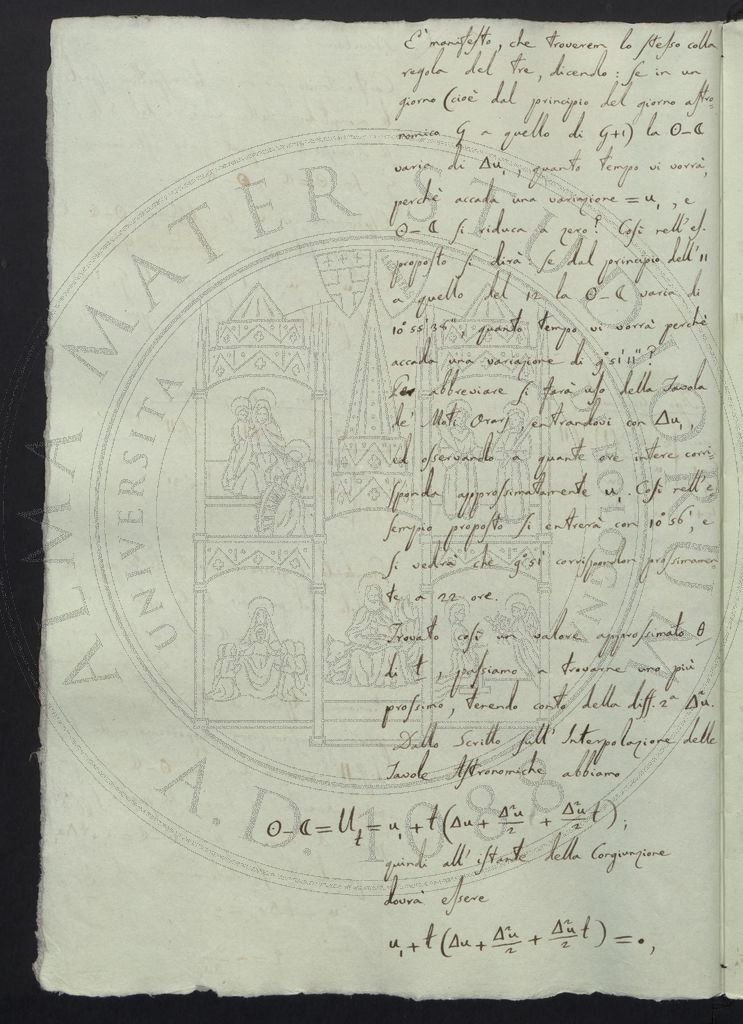 E' manifesto, che troverem lo stesso colla
regola del tre, dicendo: se in un
giorno (cioè dal principio del giorno astro-
nomico G a quello di G+1) la ʘ–☾
varia di Δu₁, quanto tempo vi vorrà,
perchè accada una variazione = u₁, e
ʘ–☾ si riduca a zero? Così nell'es.
proposto si dirà. Se dal principio dell'11
a quello del 12 la ʘ–☾ varia di
10°55'38", quanto tempo vi vorrà perchè
accada una variazione di 9°51'11"?
Per abbreviare si farà uso della Tavola
de' Moti Orarj, entrandovi con Δu₁,
ed osservando a quante ore intere corri-
sponda approssimatamente u₁. Così nell'e
sempio proposto si entrerà con 10°56', e
si vedrà che 9°51' corrispondon prossimamen
te a 22 ore.
Trovato così un valore approssimato θ
di t, passiamo a trovarne uno più
prossimo, tenendo conto della diff. 2ª Δ²u.
Dallo Scritto sull'Interpolazione delle
Tavole Astronomiche abbiamo
ʘ–☾ = U_t = u₁ + t(Δu + Δ²u/2 + Δ²u/2 t);
quindi all'istante della Congiunzione
dovrà essere
u₁ + t(Δu + Δ²u/2 + Δ²u/2 t) = 0,
ALMA MATER STUDIORUM
UNIVERSITA
BOLOGNA
A.D. 1088